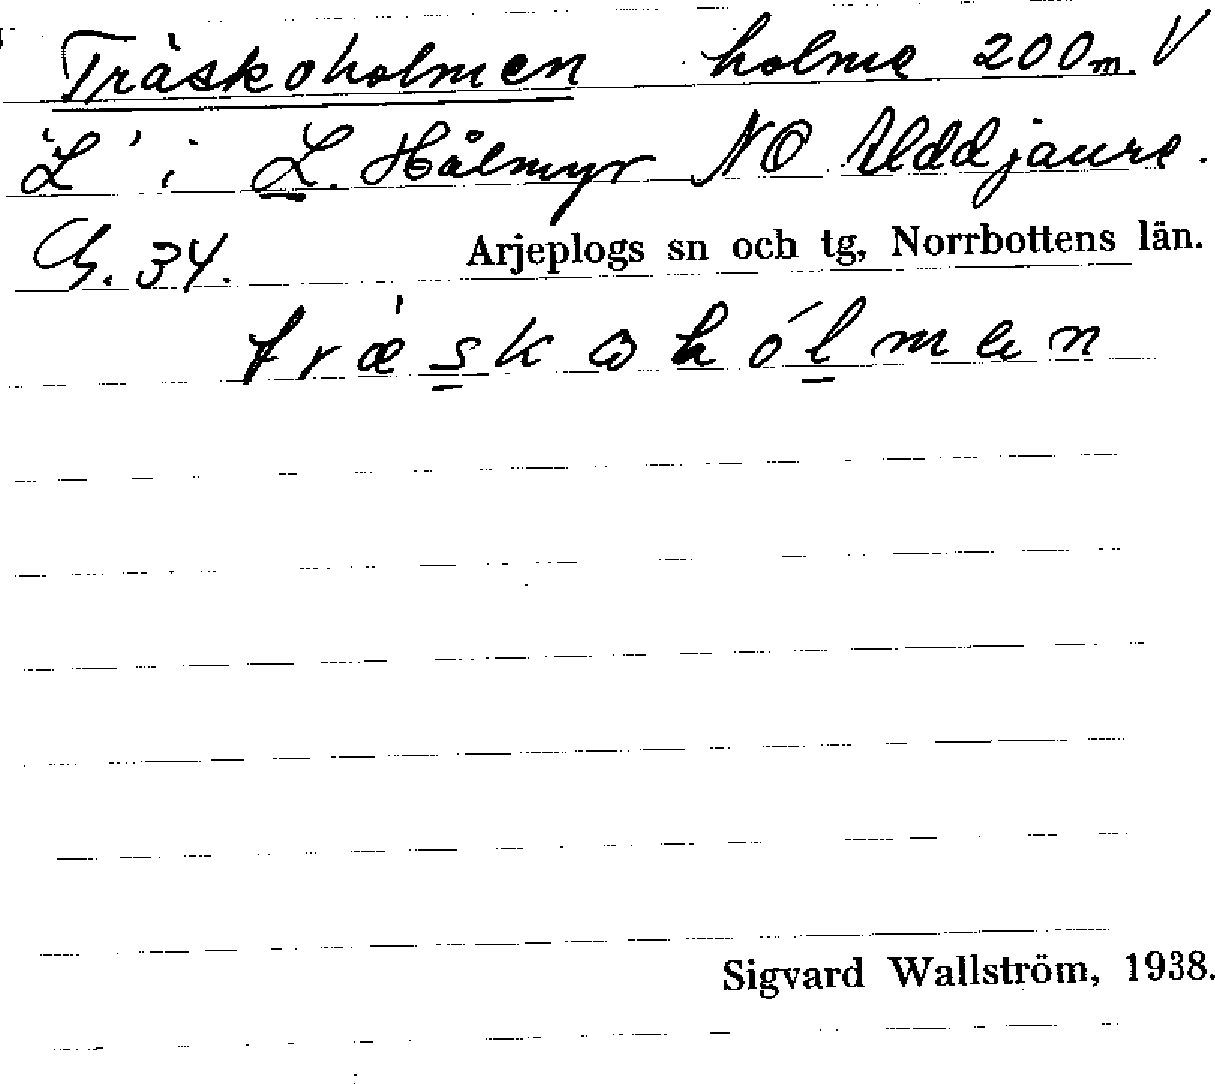 Träskoholmen holme 200 m V
"L" i L. Hålmyr NO Uddjaure.
G. 34. Arjeplogs sn och tg, Norrbottens län.
træskohólmen
Sigvard Wallström, 1938.